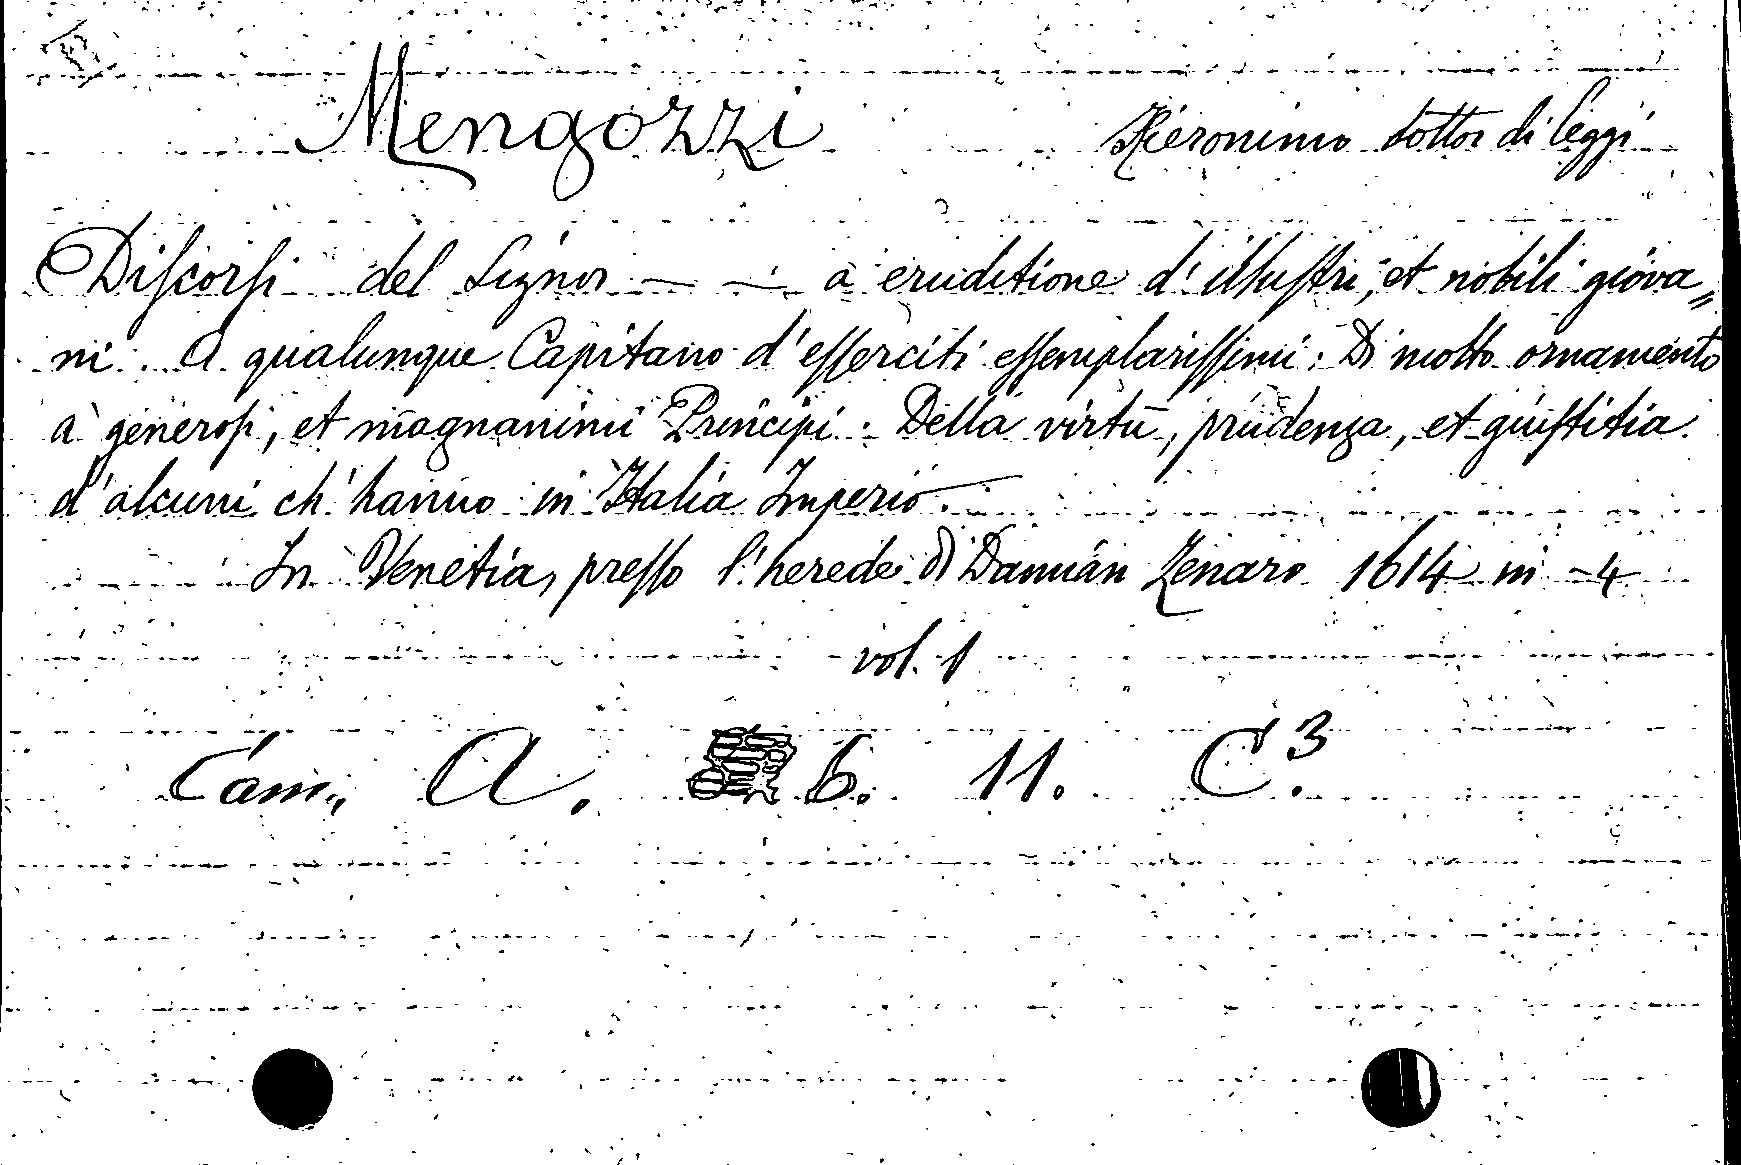 Mengozzi Hieronimo dottor di leggi
Diſcorſi del Signor — — à eruditione d'illuſtri, et nobili giova„
ni. A qualunque Capitano d'eſſerciti eſſemplariſſimi: Di molto ornamento
à generoſi, et magnanimi Principi: Della virtù, prudenza, et giuſtitia
d'alcuni ch'hanno in Italia Imperio.
In Venetia, preſſo l'herede di Damian Zenaro 1614 in -4
vol. 1
Cam. A. 6. 11. C.³